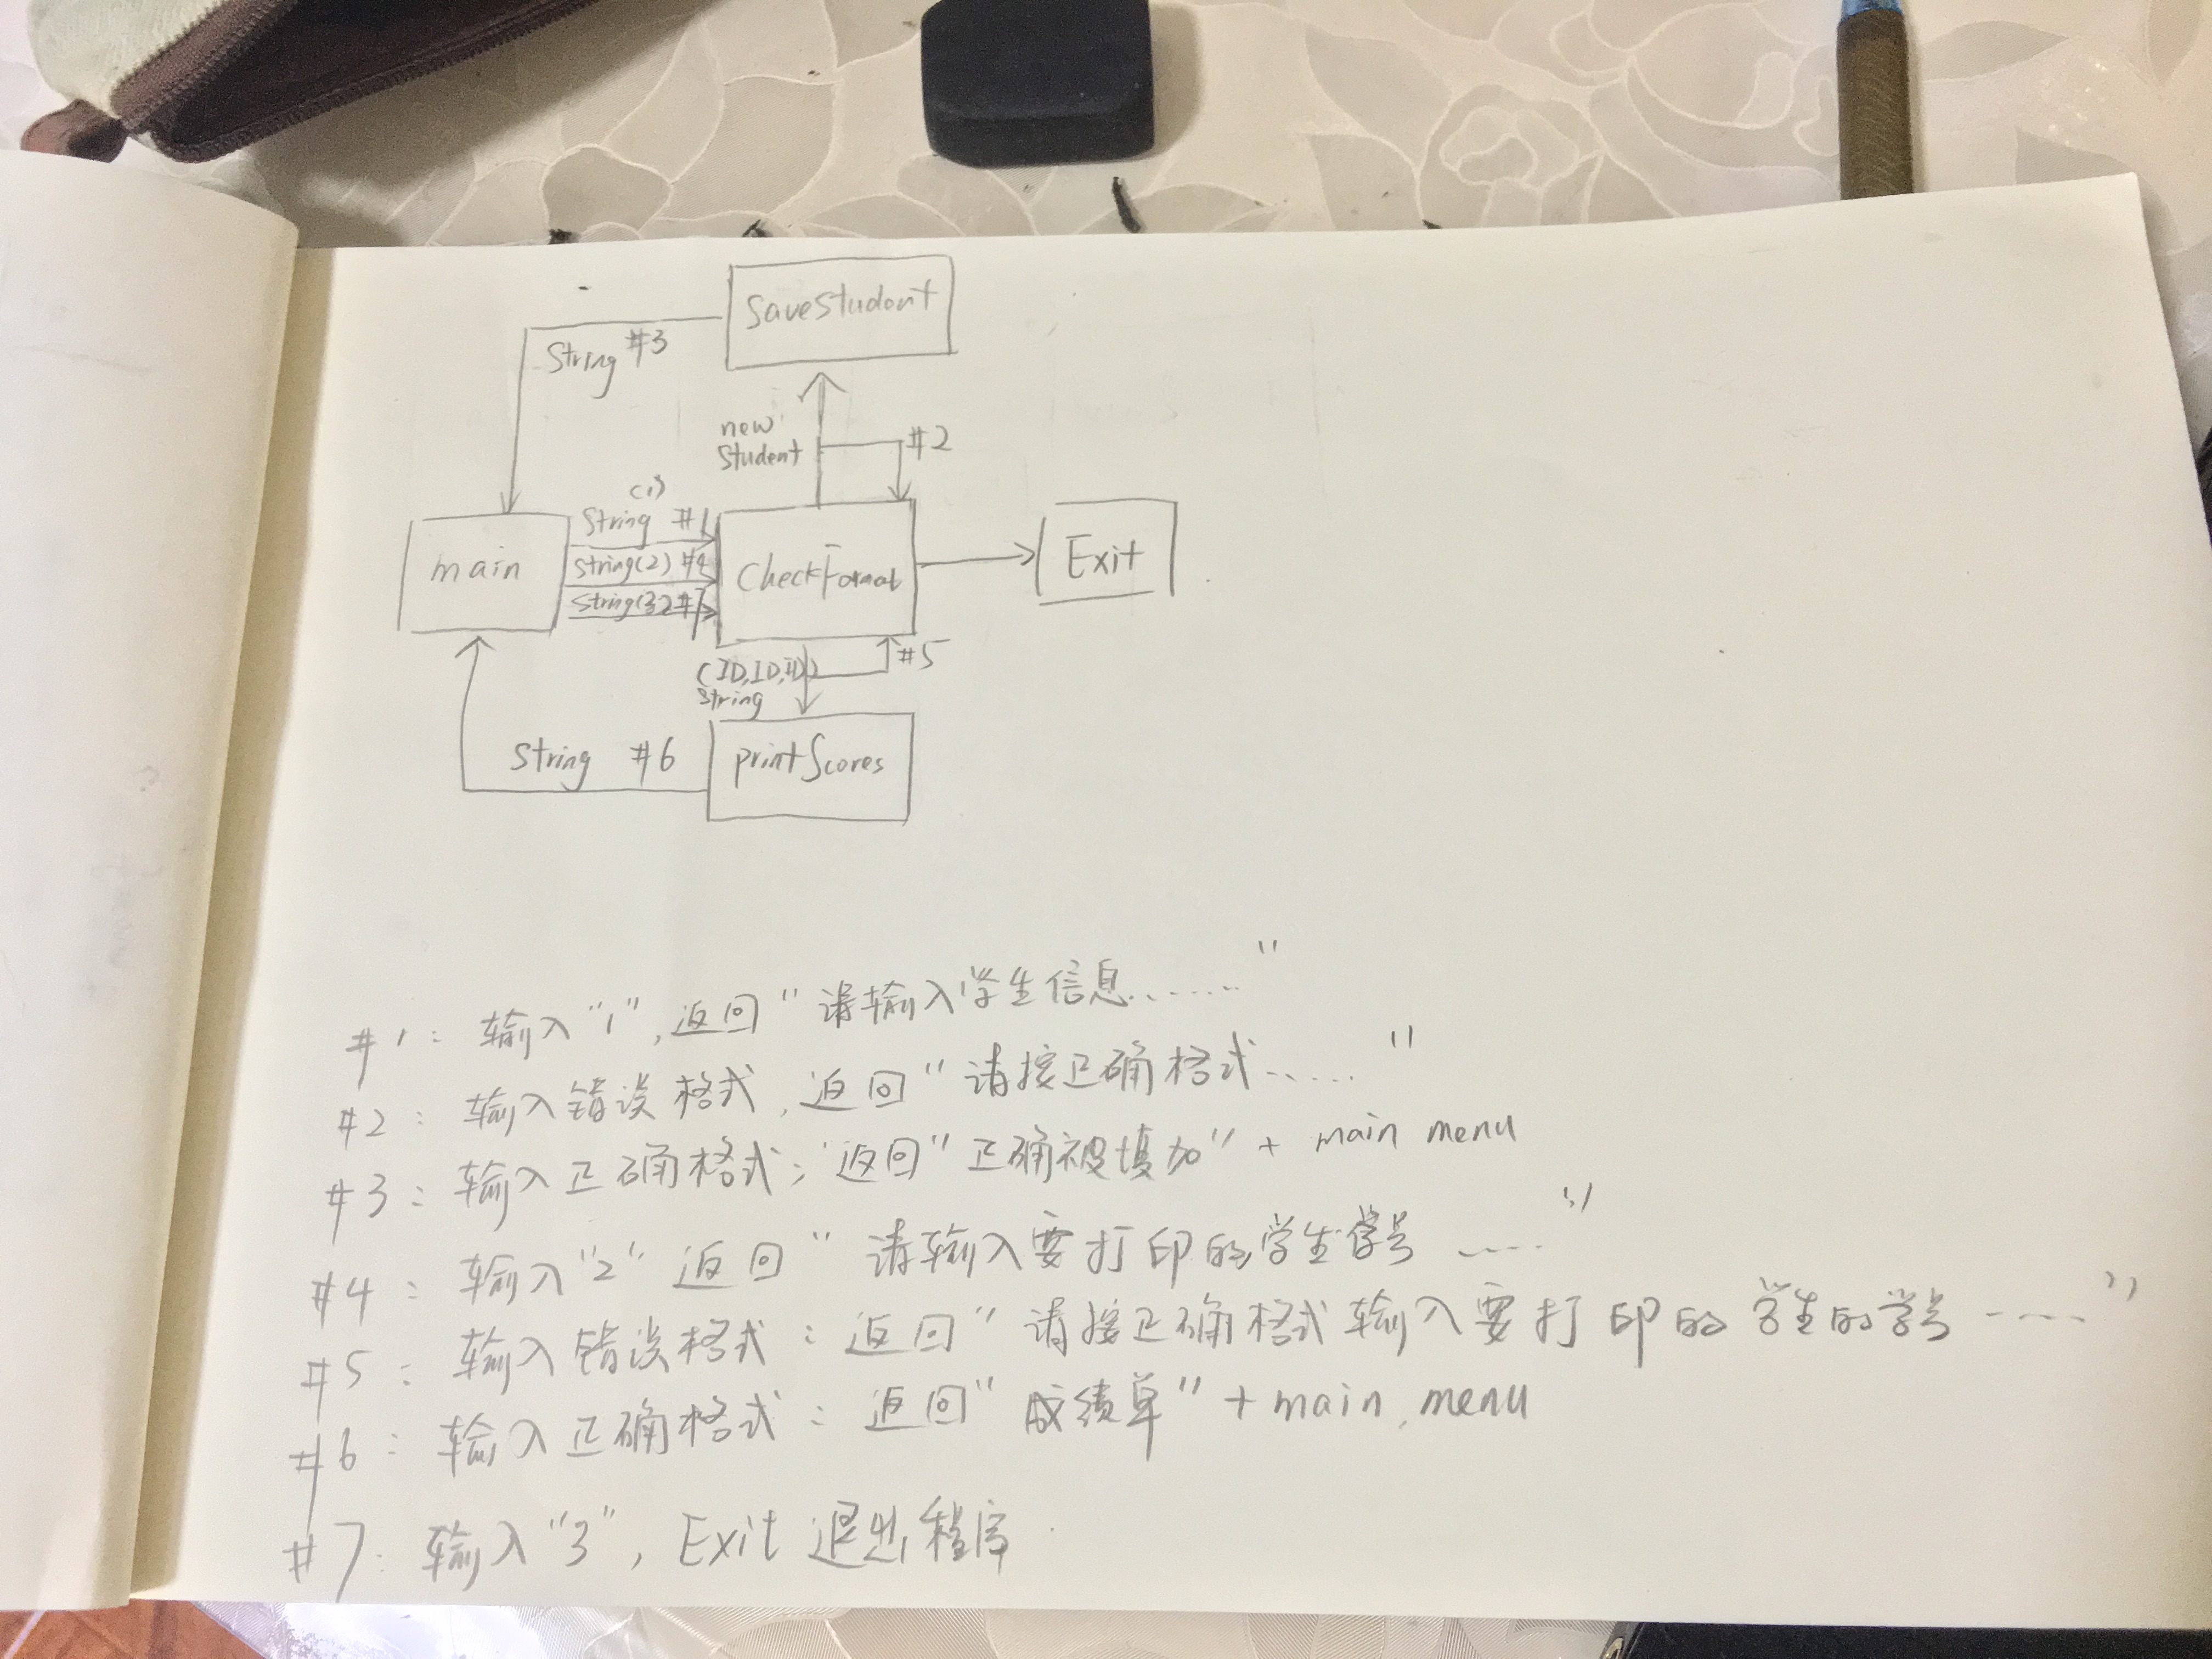 SaveStudent
String #3
new
Student
#2
main
(1)
String #1
String(2) #4
String(3) #7
CheckFormat
Exit
(ID,ID,ID)
String
#5
String #6
PrintScores
#1: 输入“1”,返回“请输入学生信息......”
#2: 输入错误格式,返回“请按正确格式......”
#3: 输入正确格式: 返回“正确被添加”+ main menu
#4: 输入“2” 返回“请输入要打印的学生学号 ....”
#5: 输入错误格式: 返回“请按正确格式输入要打印的学生的学号 ....”
#6: 输入正确格式: 返回“成绩单”+ main menu
#7: 输入“3”, Exit 退出程序.